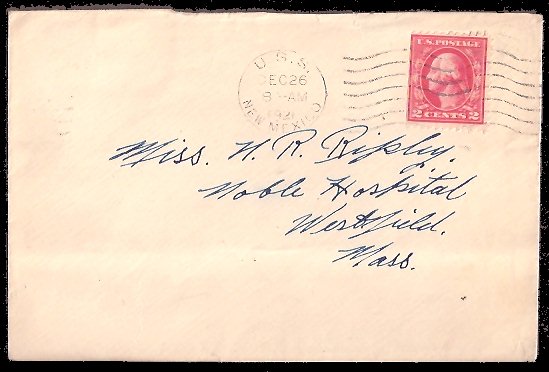 U.S.S.
DEC 26
8-AM
1921
NEW MEXICO
U.S. POSTAGE
2 CENTS 2
Miss. H. R. Ripley.
Noble Hospital
Westfield.
Mass.